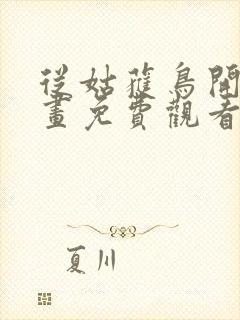 從姑蘿鳥開
畫免費觀看
夏川